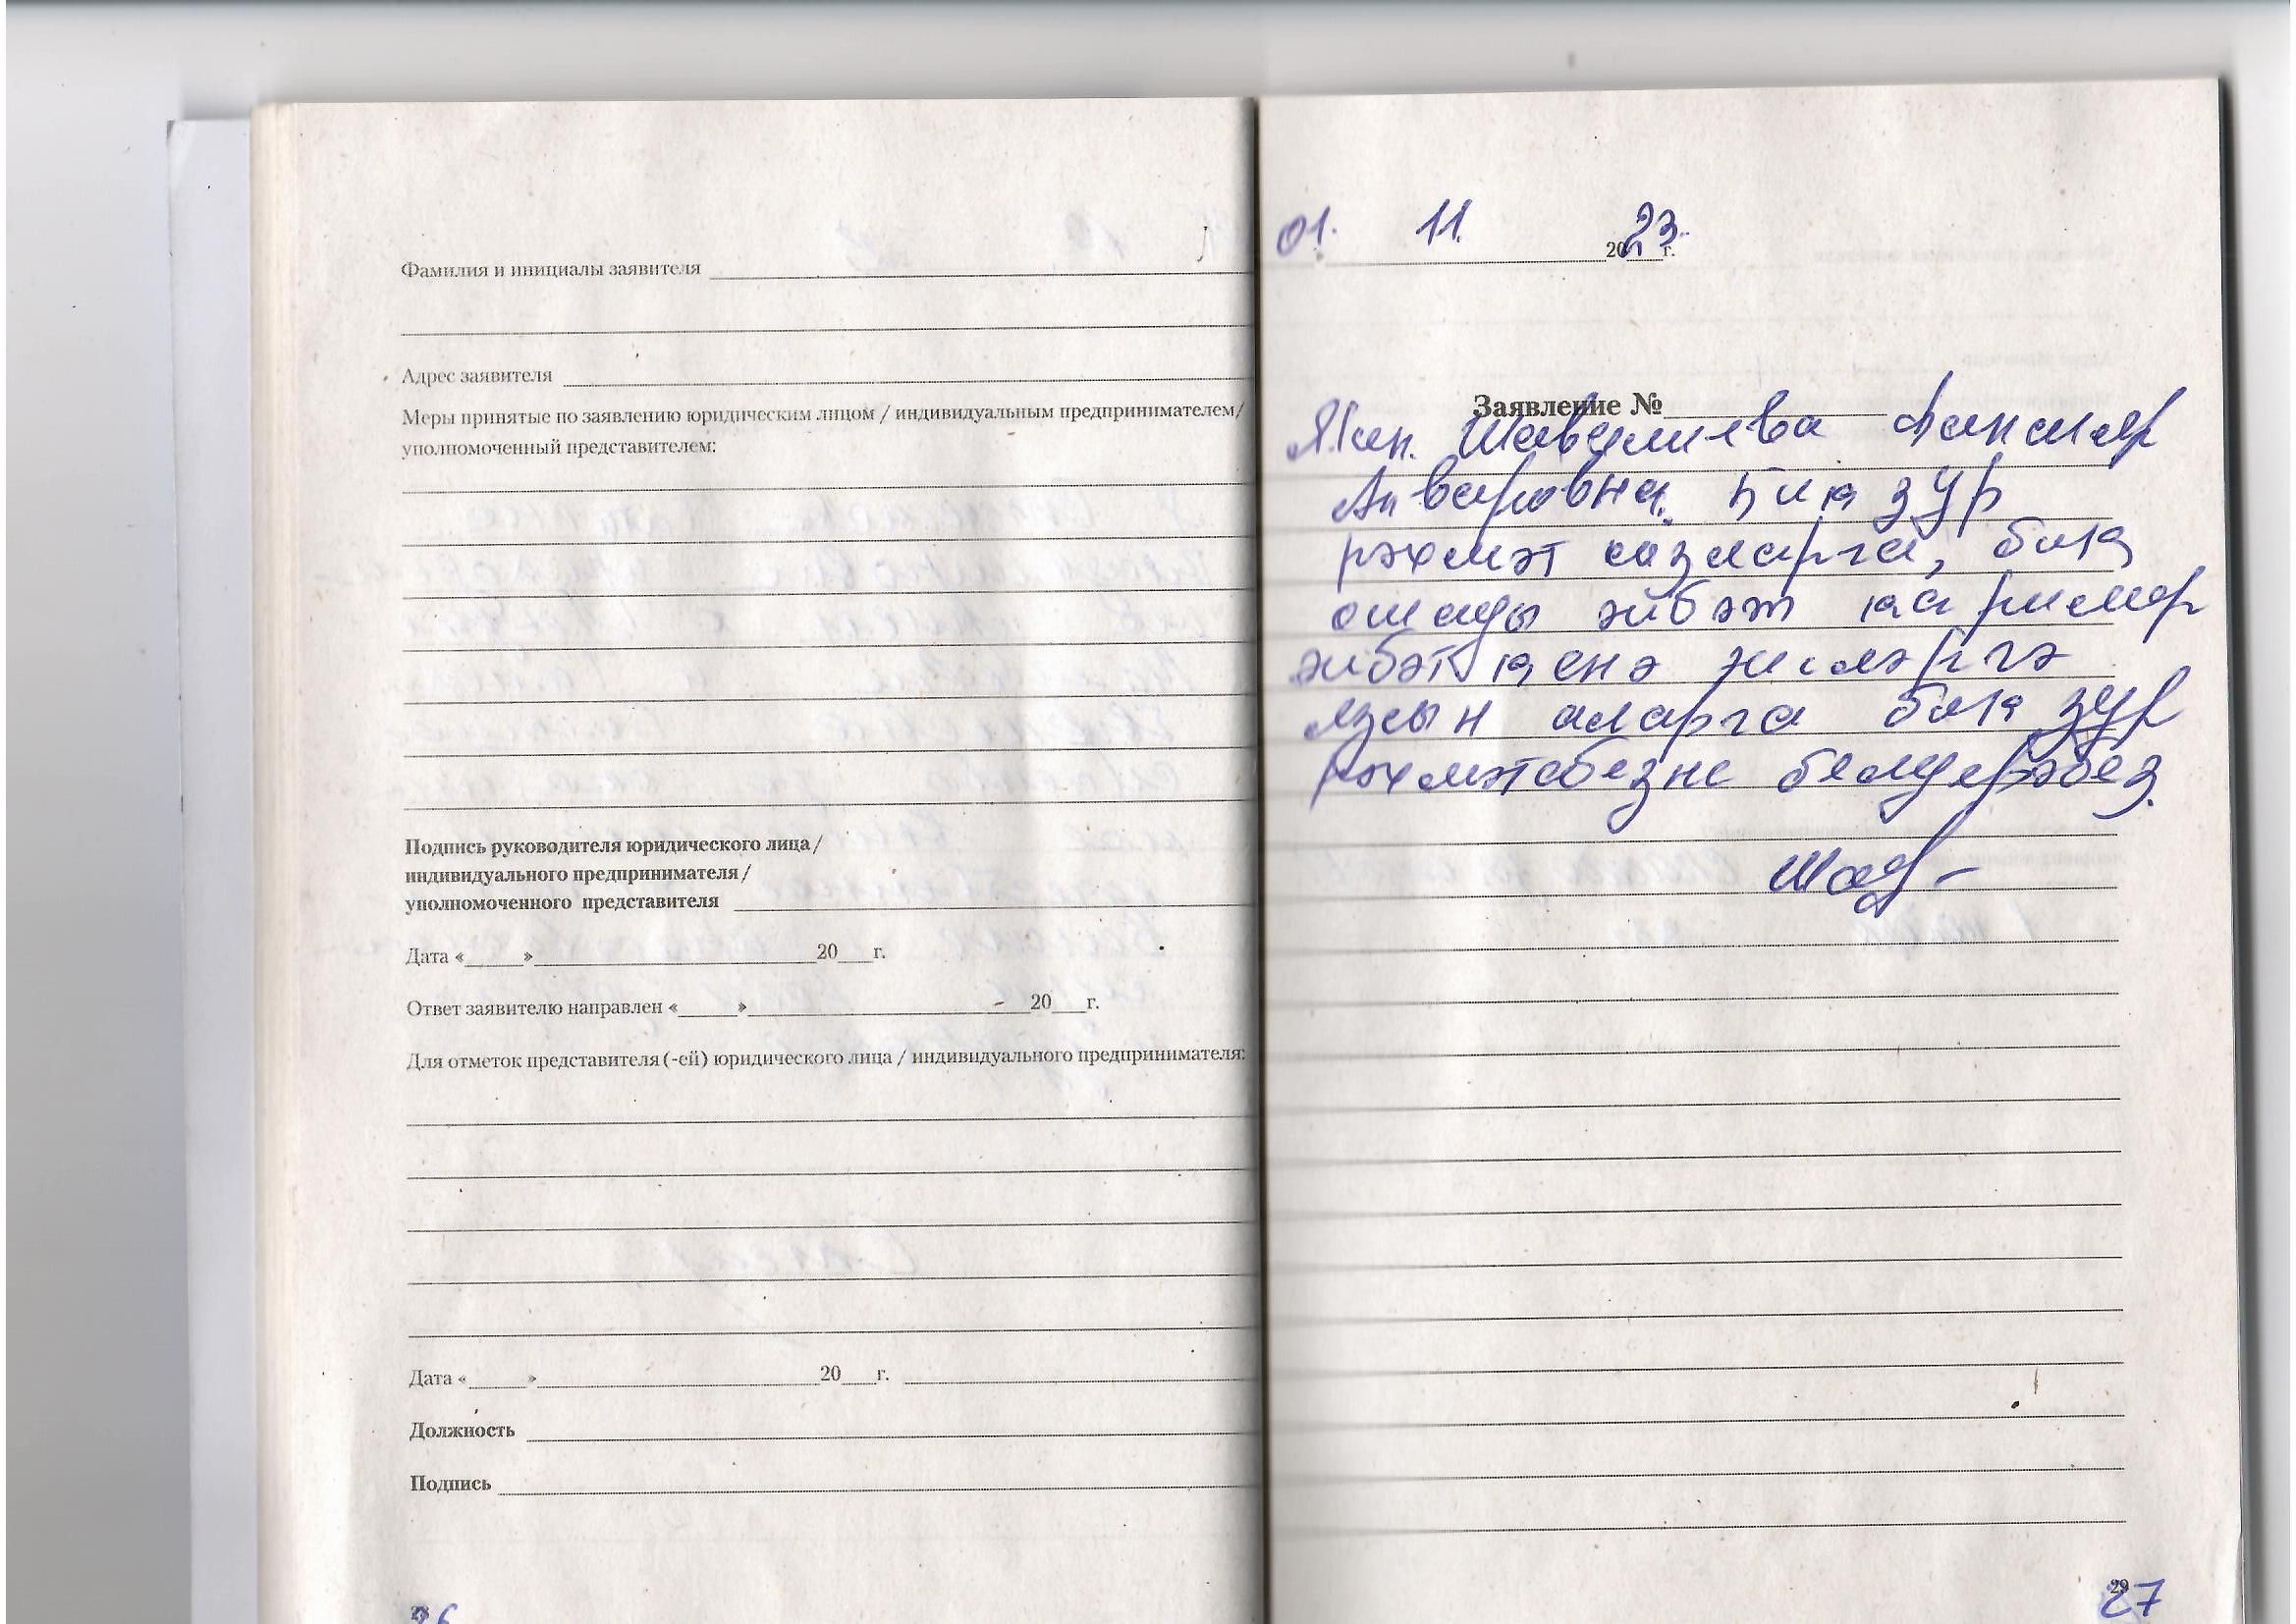 Фамилия и инициалы заявителя
Адрес заявителя
Меры принятые по заявлению юридическим лицом / индивидуальным предпринимателем/
уполномоченный представителем:
Подпись руководителя юридического лица/
индивидуального предпринимателя/
уполномоченного представителя
Дата «_____»____________20___г.
Ответ заявителю направлен «_____»____________20___г.
Для отметок представителя (-ей) юридического лица / индивидуального предпринимателя:
Дата «_____»____________20___г.
Должность
Подпись
26
01. 11. 2023 г.
Заявление №
Шавалиева
Анваровна. Бик зур
рәхмәт сазларга, бик
ошады әйбәт
әйбәт кенә
язсын аларга бик зур
рәхмәтебезне белдерәбез.
Шав-
27